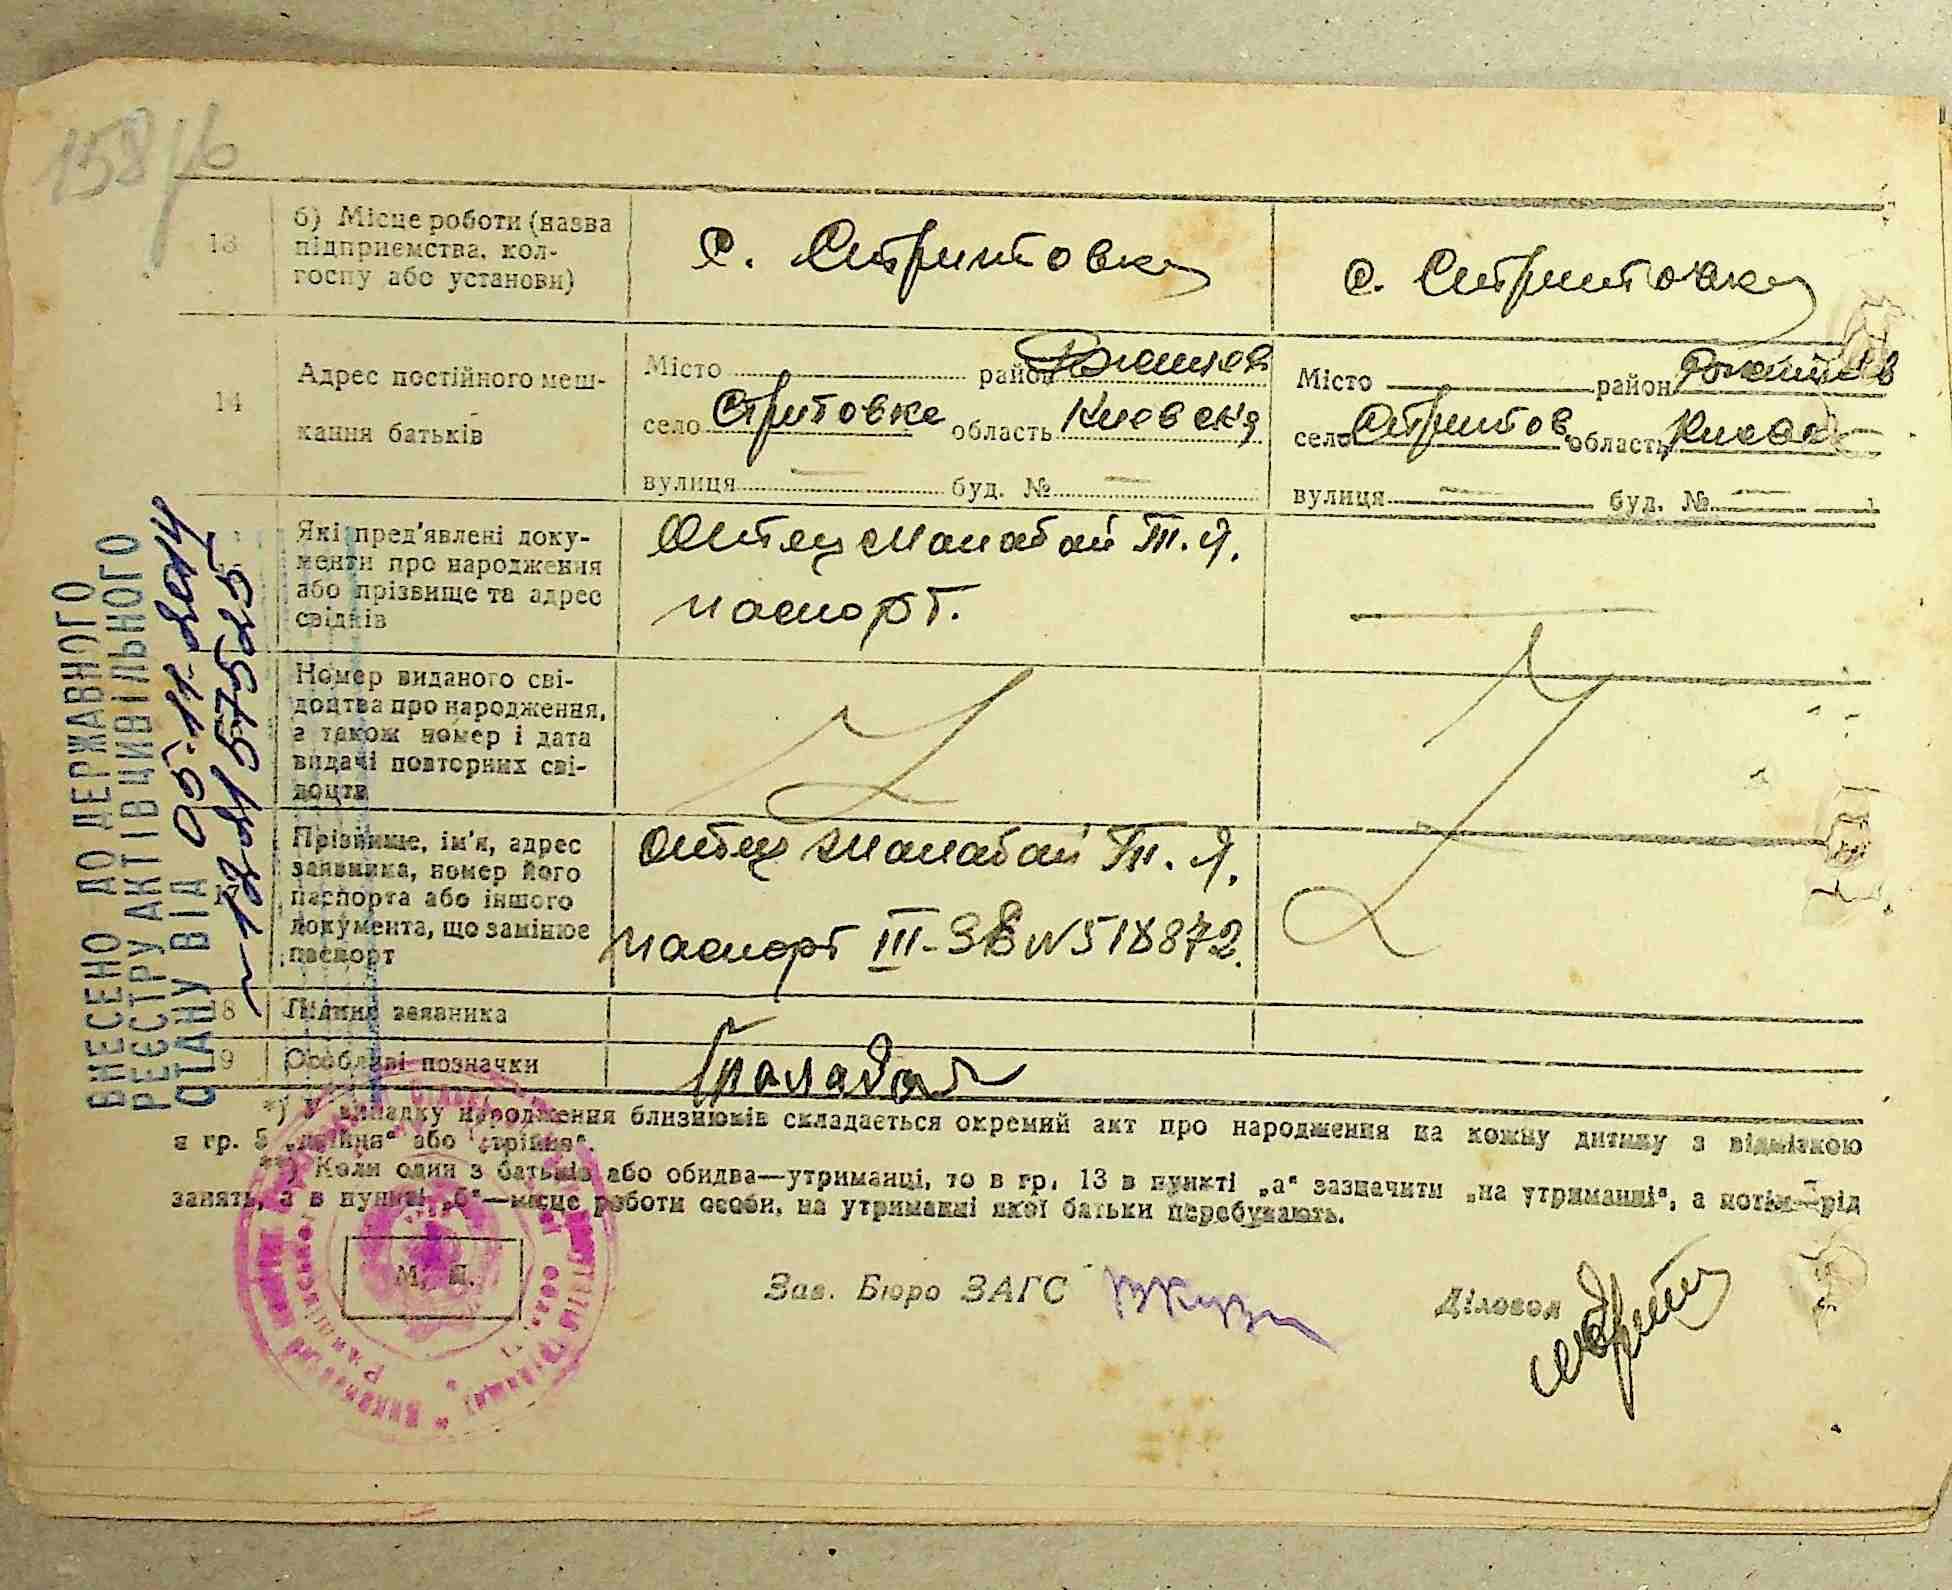 158
13
б) Місце роботи (назва
підприємства, кол-
госпу або установи)
с. Стритовка
с. Стритовка
14
Адрес постійного меш-
кання батьків
Місто район
село Стритовка область Киевская
вулиця — буд. № —
Місто район
село Стритов область
вулиця — буд. № —
Які пред'явлені доку-
менти про народження
або прізвище та адрес
свідків
Отец Малабай Т. Я.
паспорт.
Номер виданого сві-
доцтва про народження,
а також номер і дата
видачі повторних сві-
доцтв
Прізвище, ім'я, адрес
заявника, номер його
паспорта або іншого
документа, що замінює
паспорт
Отец Малабай Т. Я.
паспорт III-ЗВ N 518872.
18
Підпис заявника
19
Особливі позначки
*) У випадку народження близнюків складається окремий акт про народження на кожну дитину з відміткою
в гр. 5 „двійня“ або „трійня“.
**) Коли один з батьків або обидва—утриманці, то в гр. 13 в пункті „а“ зазначити „на утриманні“, а потім—рід
занять, а в пункті „б“—місце роботи особи, на утриманні якої батьки перебувають.
М. П.
Зав. Бюро ЗАГС
Діловод
ВНЕСЕНО ДО ДЕРЖАВНОГО
РЕЄСТРУ АКТІВ ЦИВІЛЬНОГО
СТАНУ ВІД 05.11.2014